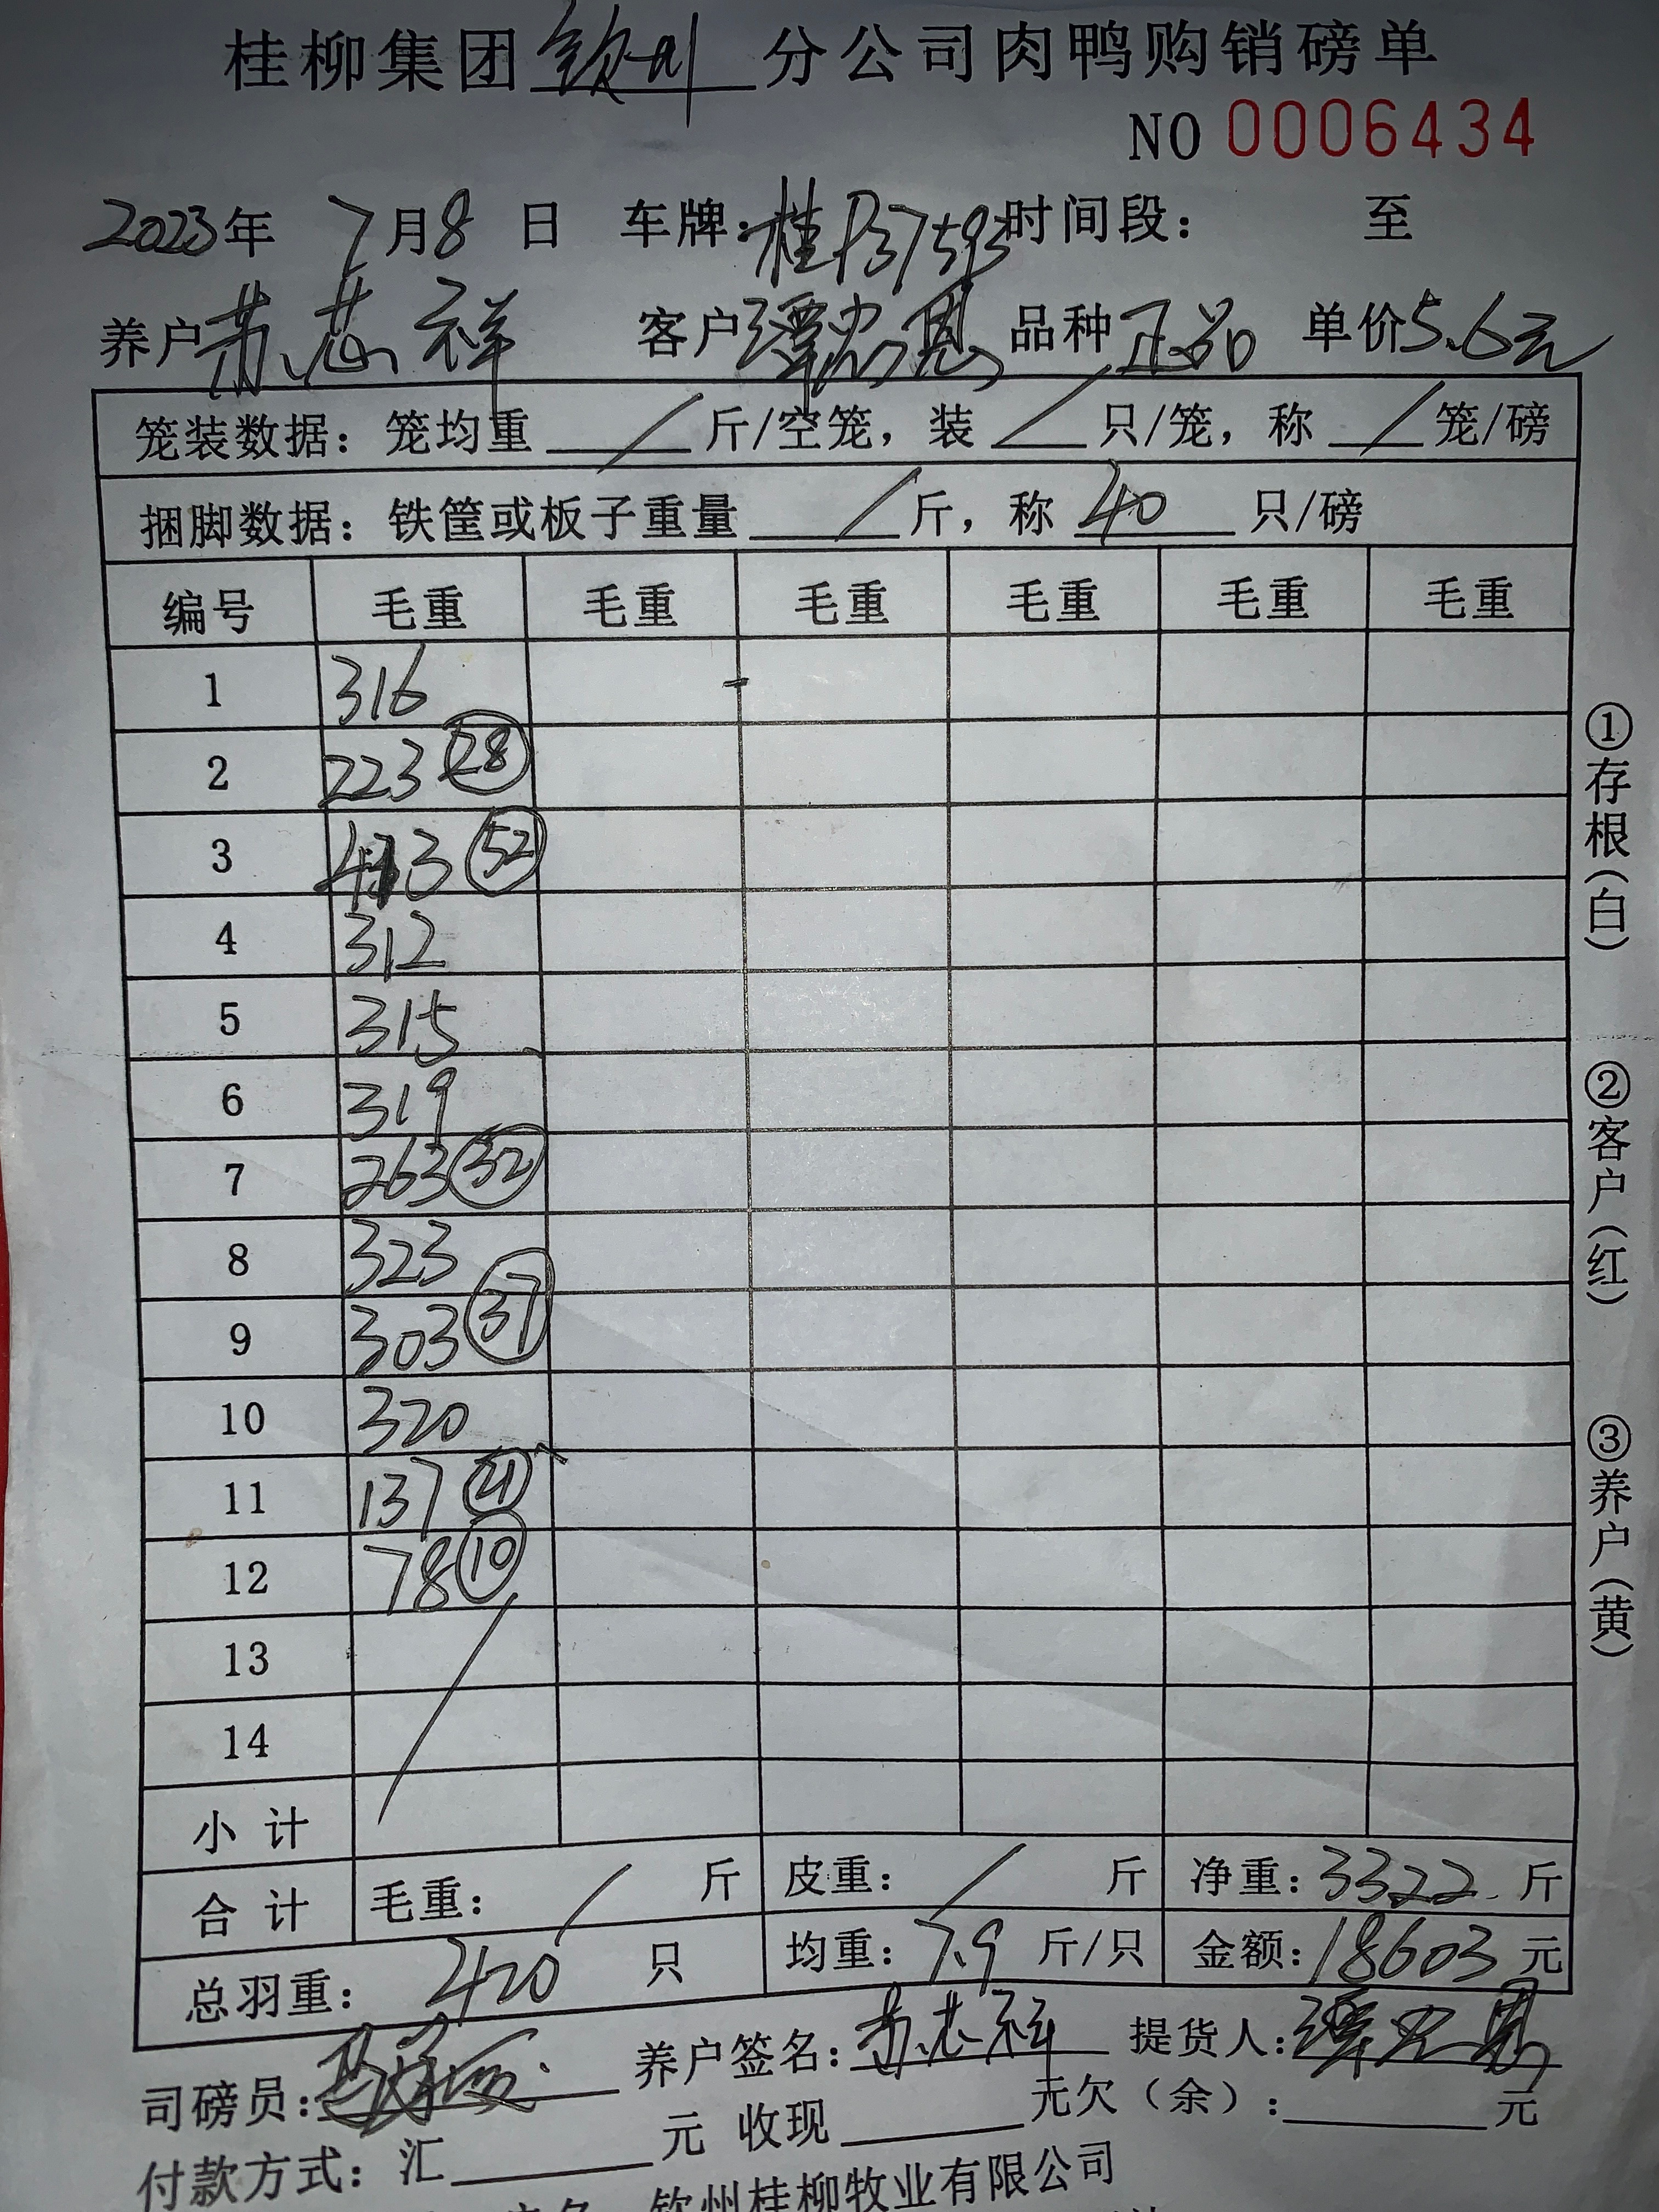 桂柳集团钦州分公司肉鸭购销磅单
NO 0006434
2023年 7月8日 车牌:桂P37593时间段: 至
养户苏芯祥 客户谭忠恩 品种正品 单价5.6元
笼装数据: 笼均重 / 斤/空笼, 装 / 只/笼, 称 / 笼/磅
捆脚数据: 铁筐或板子重量 / 斤, 称 40 只/磅
编号 毛重 毛重 毛重 毛重 毛重 毛重
1 316
2 223 28
3 413 52
4 312
5 315
6 319
7 263 32
8 323
9 303 37
10 320
11 137
12 78 10
13
14
小计
合计 毛重: / 斤 皮重: / 斤 净重: 3322 斤
总羽重: 420 只 均重: 7.9 斤/只 金额: 18603 元
司磅员: 养户签名: 苏芯祥 提货人: 谭忠恩
付款方式: 汇 元 收现 元欠(余): 元
钦州桂柳牧业有限公司
①存根(白)
②客户(红)
③养户(黄)